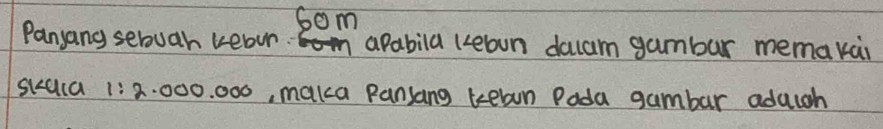 Panjang sebuah kebun 60m apabila kebun dalam gambar memakai
skala 1:2.000.000, maka Panjang kebun Pada gambar adalah